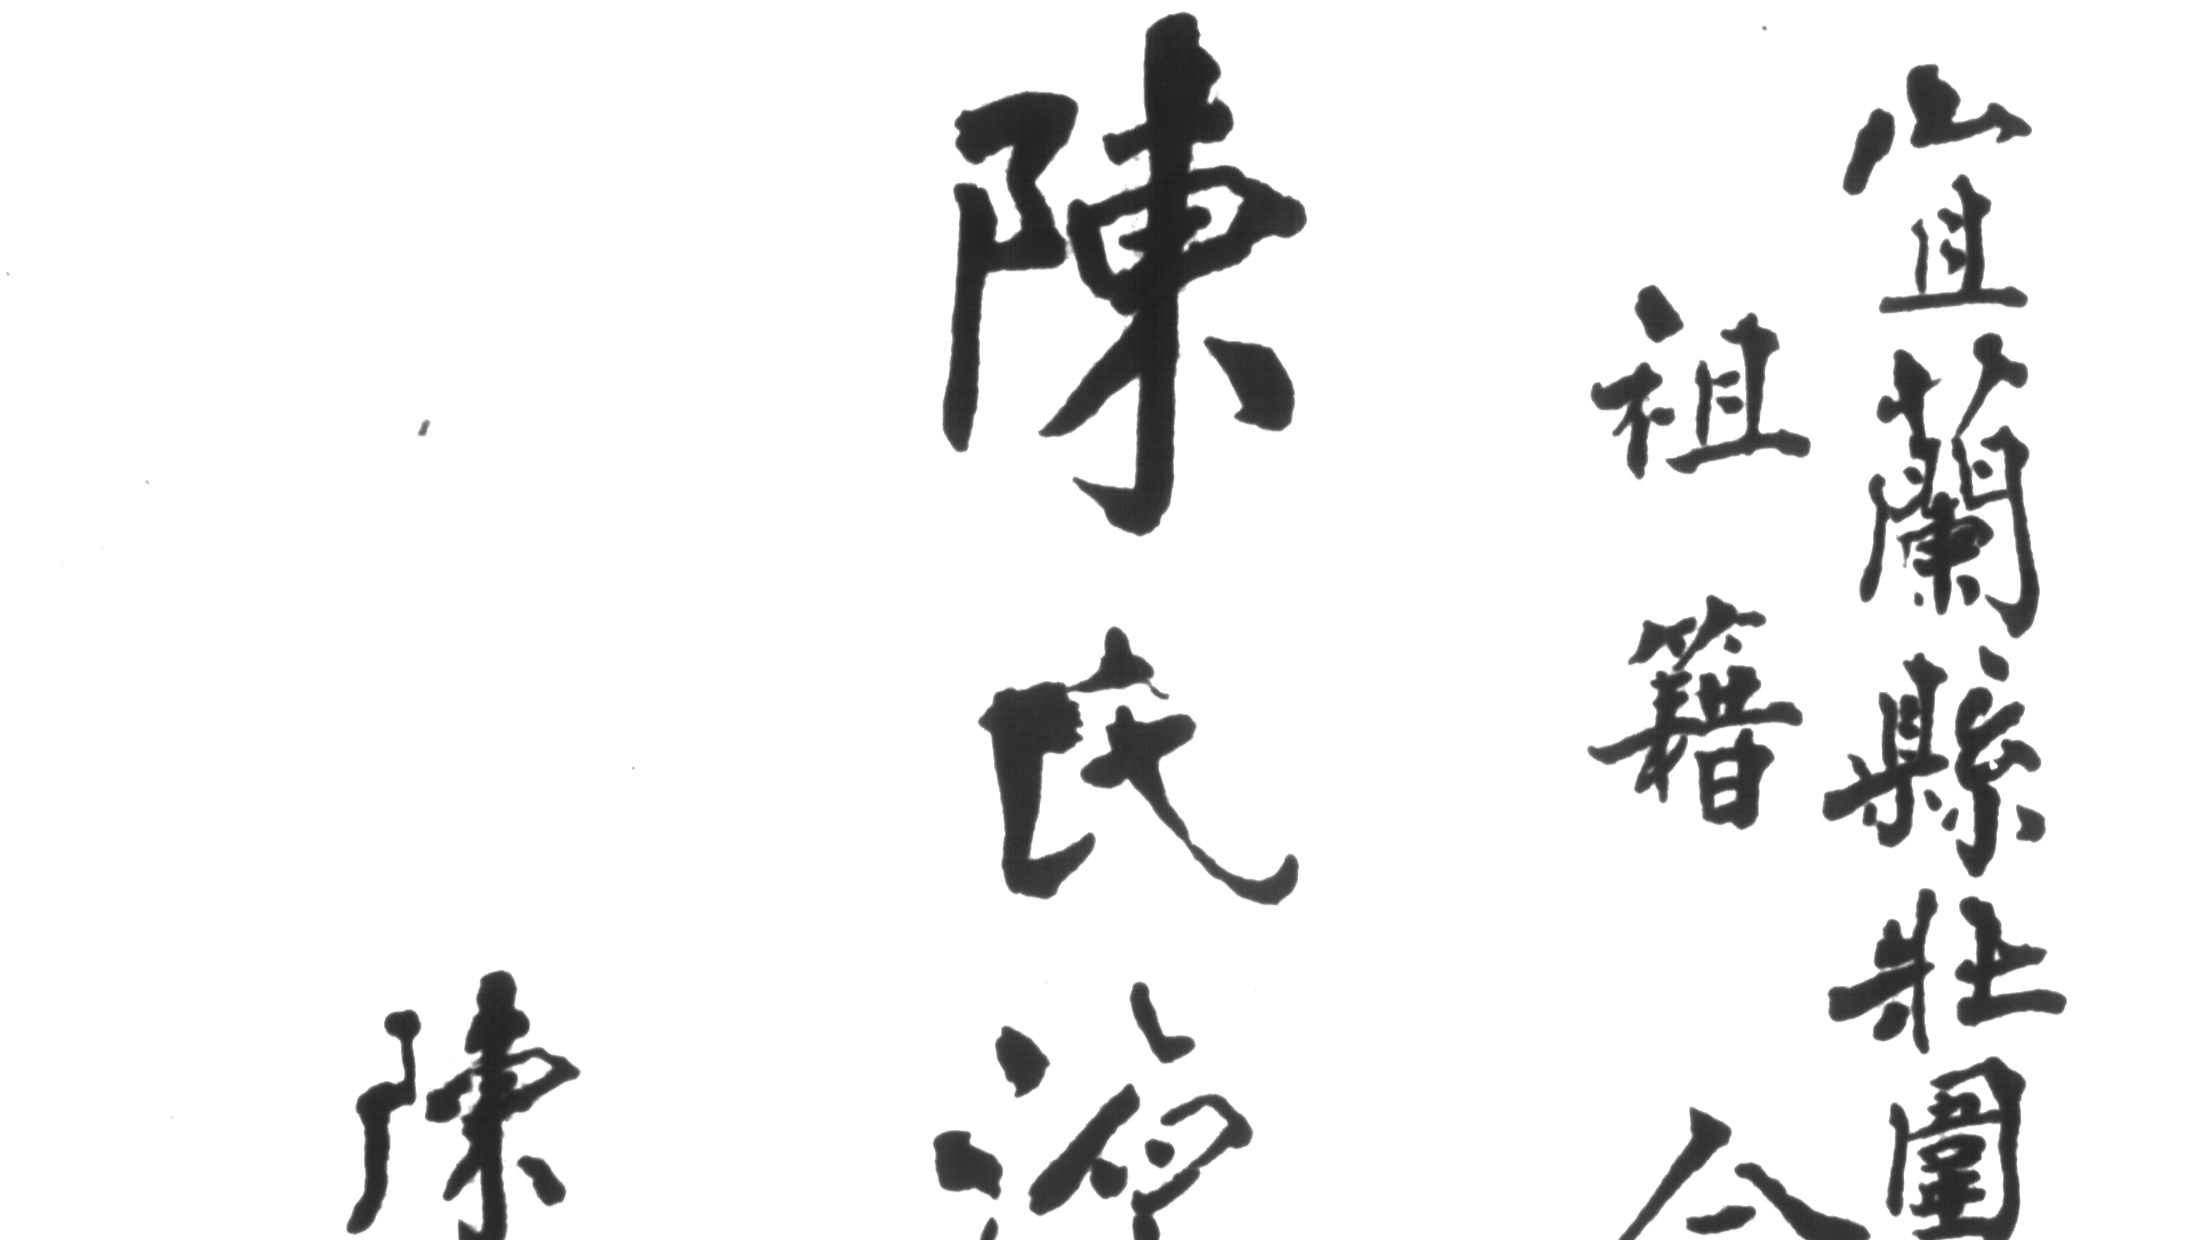 宜蘭縣壯圍
祖籍
陳氏
陳